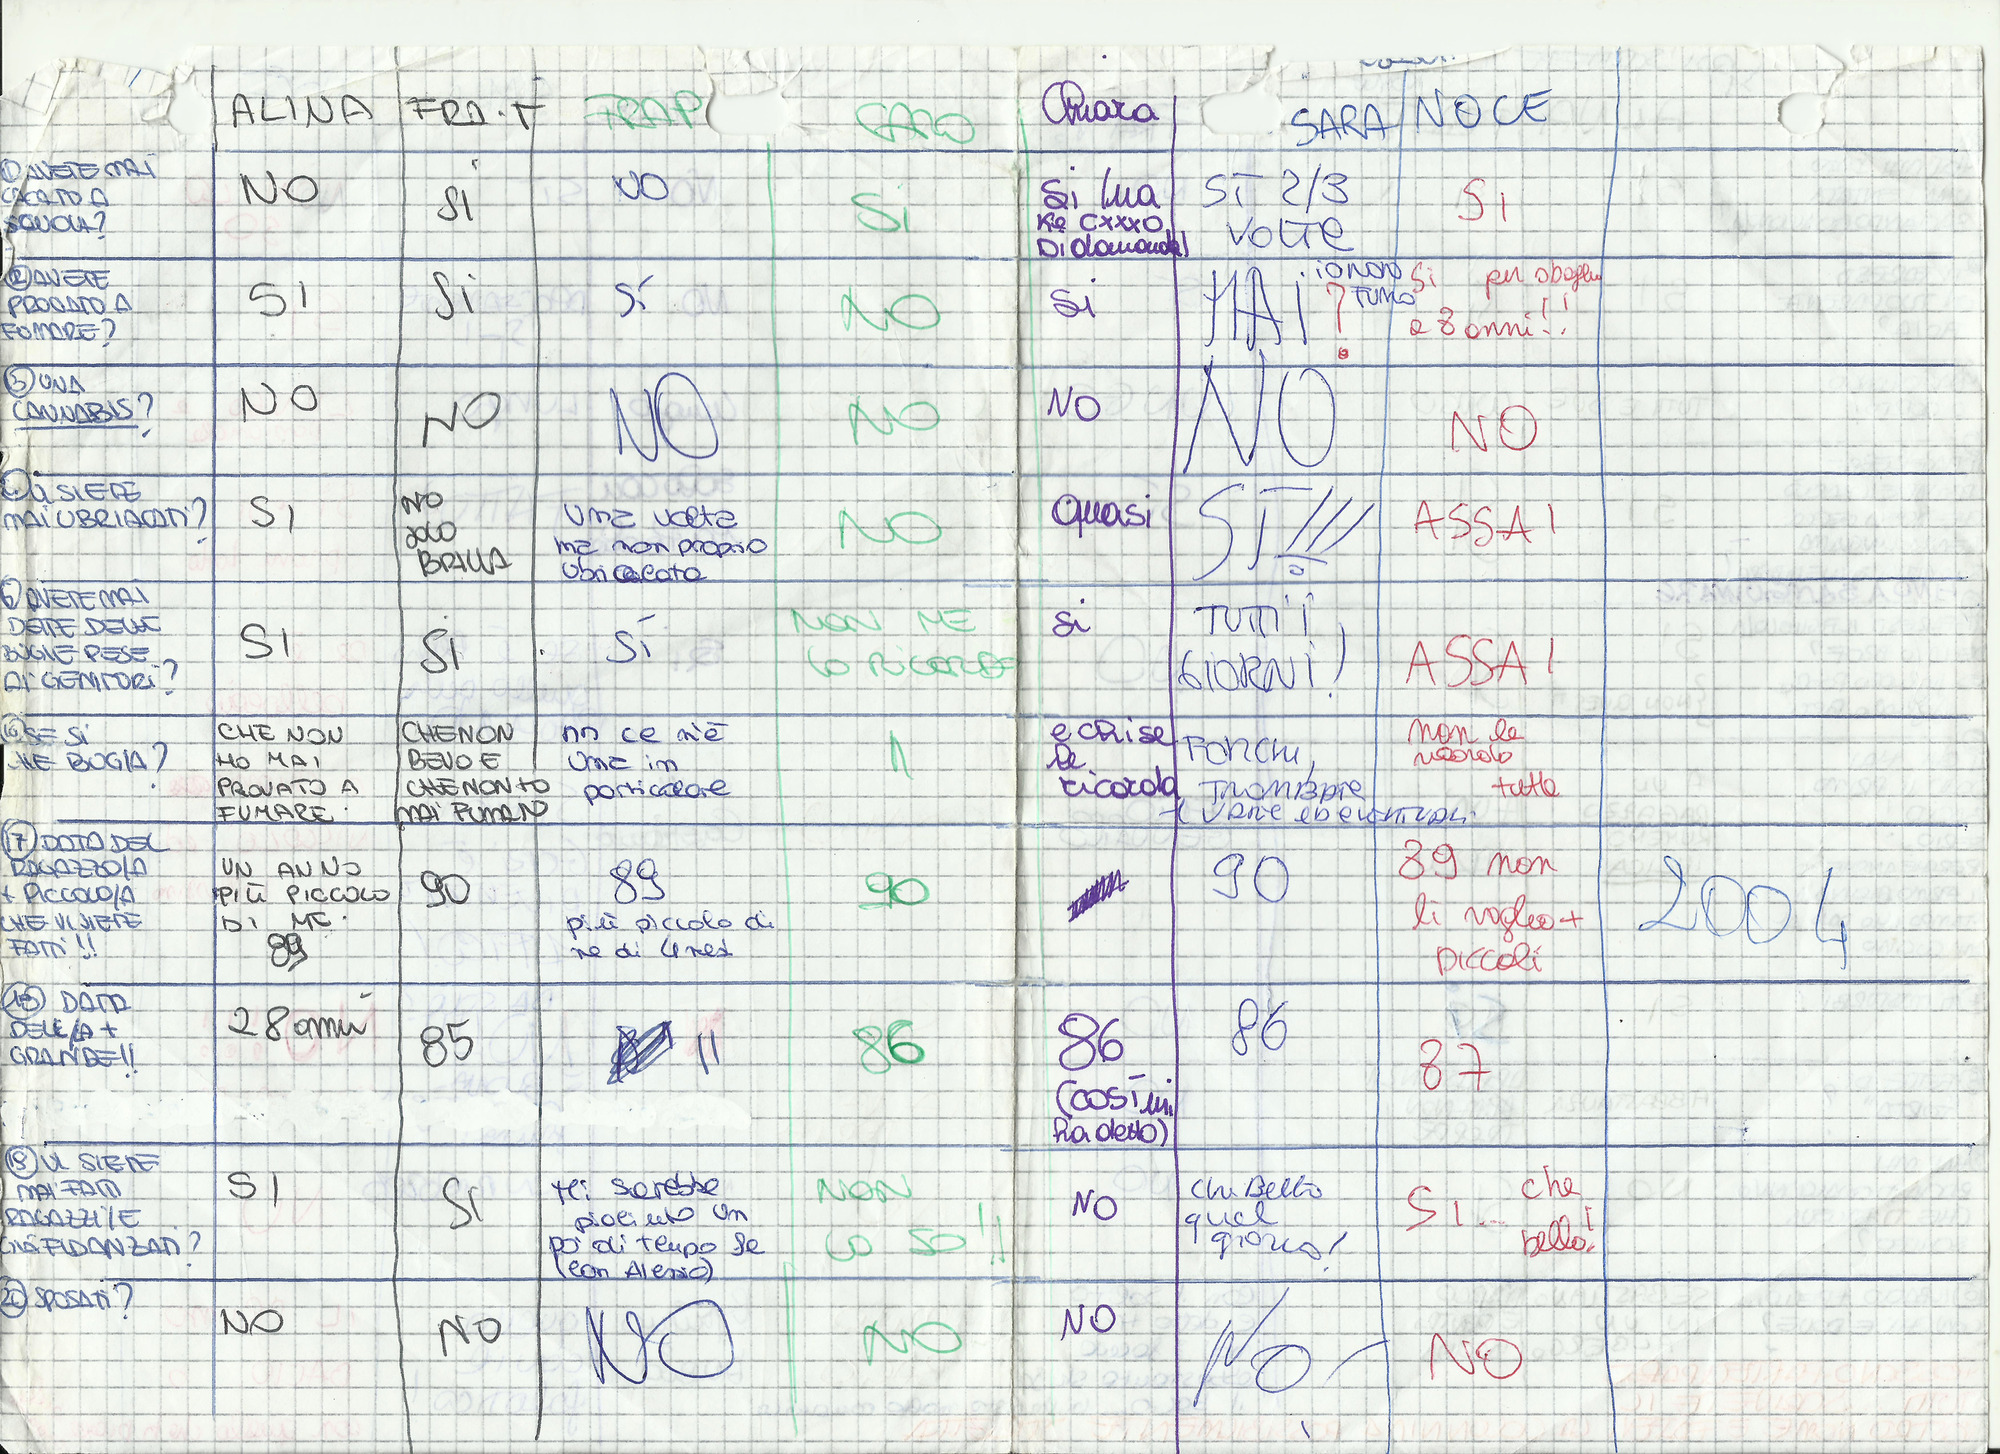 ALINA FRA.T FRAP SARO Chiara SARA NOCE
① AVETE MAI
CACATO A
SCUOLA?
NO
SI
NO
SI
Si (ma
Ke CXXXO
Di domanda)
SI 2/3
VOLTE
SI
② AVETE
PROVATO A
FUMARE?
SI
SI
SI
NO
Si
MAI
io non
FUMO
?
Si per sbaglio
a 8 anni!!
③ UNA
CANNABIS?
NO
NO
NO
NO
NO
NO
NO
VI SIETE
MAI UBRIACATI?
SI
NO
SOLO
BRILLA
Una volta
ma non proprio
ubriacata
NO
Quasi
SI!!!
ASSAI
AVETE MAI
DETTE DELLE
BUGIE PESE
AI GENITORI?
SI
SI
SI
NON ME
LO RICORDO
Si
TUTTI I
GIORNI!
ASSAI
SE SI
CHE BUGIA?
CHE NON
HO MAI
PROVATO A
FUMARE.
CHE NON
BEVO E
CHE NON HO
MAI FUMATO
nn ce n'è
una in
particolare
//
e chi se
le
ricorda
FORCHI,
TROMBATE
+ VARIE ED EVENTUALI.
non le
ricordo
tutte
17 DATA DEL
RAGAZZO/A
+ PICCOLO/A
CHE VI SIETE
FATTI!!
UN ANNO
PIÙ PICCOLO
DI ME.
89
90
89
più piccolo di
me di 4 mesi
90
90
89 non
li voglio +
piccoli
2004
18 DATA
DELL/A +
GRANDE!!
28 anni
85
//
86
86
(così mi
ha detto)
86
87
19 VI SIETE
MAI FATTI
RAGAZZI/E
GIÀ FIDANZATI?
SI
SI
Mi sarebbe
piaciuto un
po' di tempo fa
(con Alessio)
NON
LO SO!!
NO
Che Bello
quel
giorno!
SI... che
bello!
20 SPOSATI?
NO
NO
NO
NO
NO
NO
NO